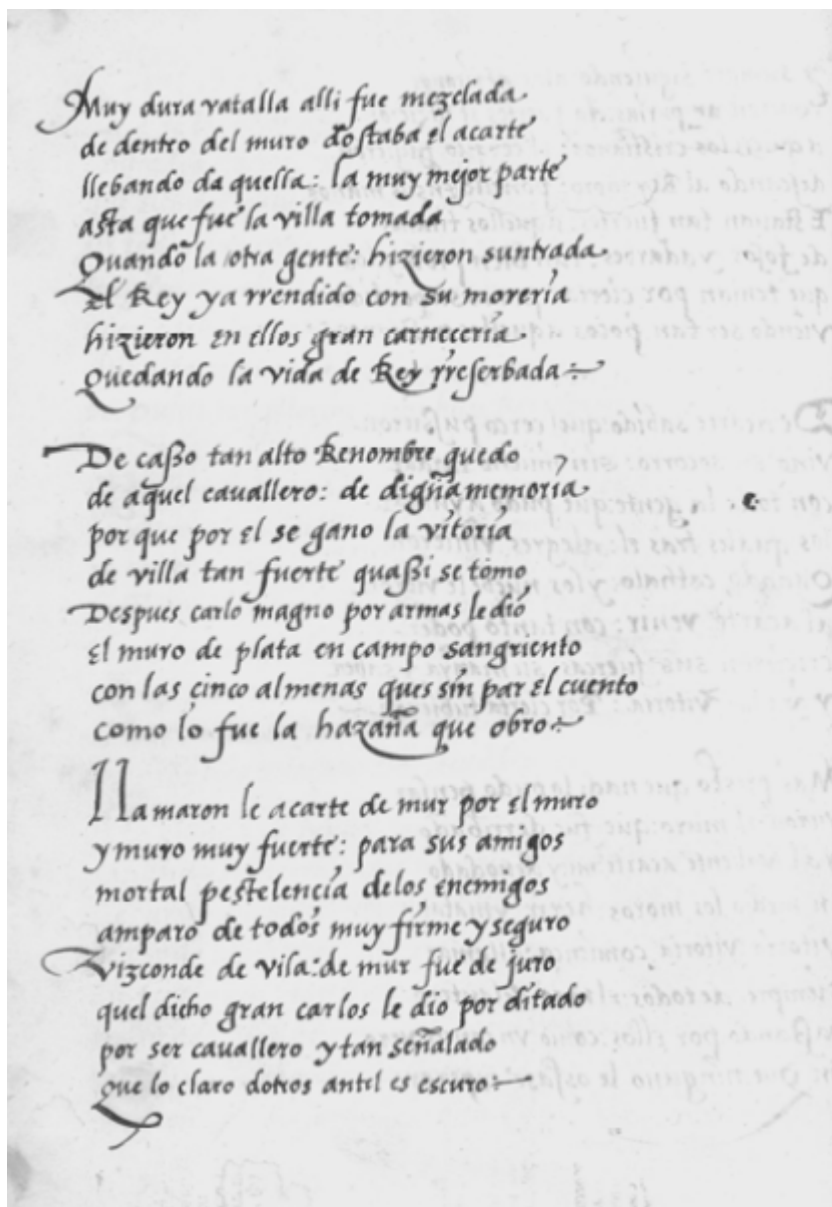 Muy dura vatalla alli fue mezclada
de dentro del muro dostaba el acarte
llebando da quella: la muy mejor parte
asta que fue la villa tomada
Quando la otra gente: hizieron suntrada
El Rey ya rrendido con su morería
hizieron en ellos gran carnecería
Quedando la vida de Rey rreserbada÷

De caßo tan alto Renombre quedo
de aquel cavallero: de digña memoria
por que por el se gano la vitoría
de villa tan fuerte quaßi se tomo
Despues carlo magno por armas le dió
El muro de plata en campo sangriento
con las cinco almenas ques sín par El cuento
como lo fue la hazaña que obro÷

Llamaron le acarte de mur por El muro
y muro muy fuerte: para sus amigos
mortal pestelencía delos enemigos
amparo de todos muy fírme y seguro
vizconde de vila: de mur fue de juro
quel dicho gran carlos le dio por ditado
por ser cavallero y tan señalado
que lo claro dotros antel es escuro÷